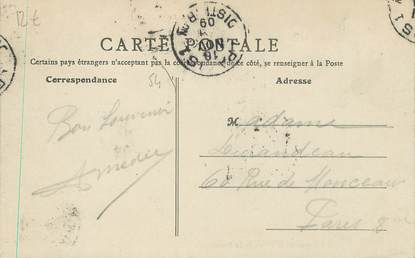 12 €
CARTE POSTALE
Certains pays étrangers n'acceptant pas la correspondance de ce côté, se renseigner à la Poste
Correspondance
54
Adresse
Bon Souvenir
Amédée
Madame
60 Rue de Monceau
Paris 8me